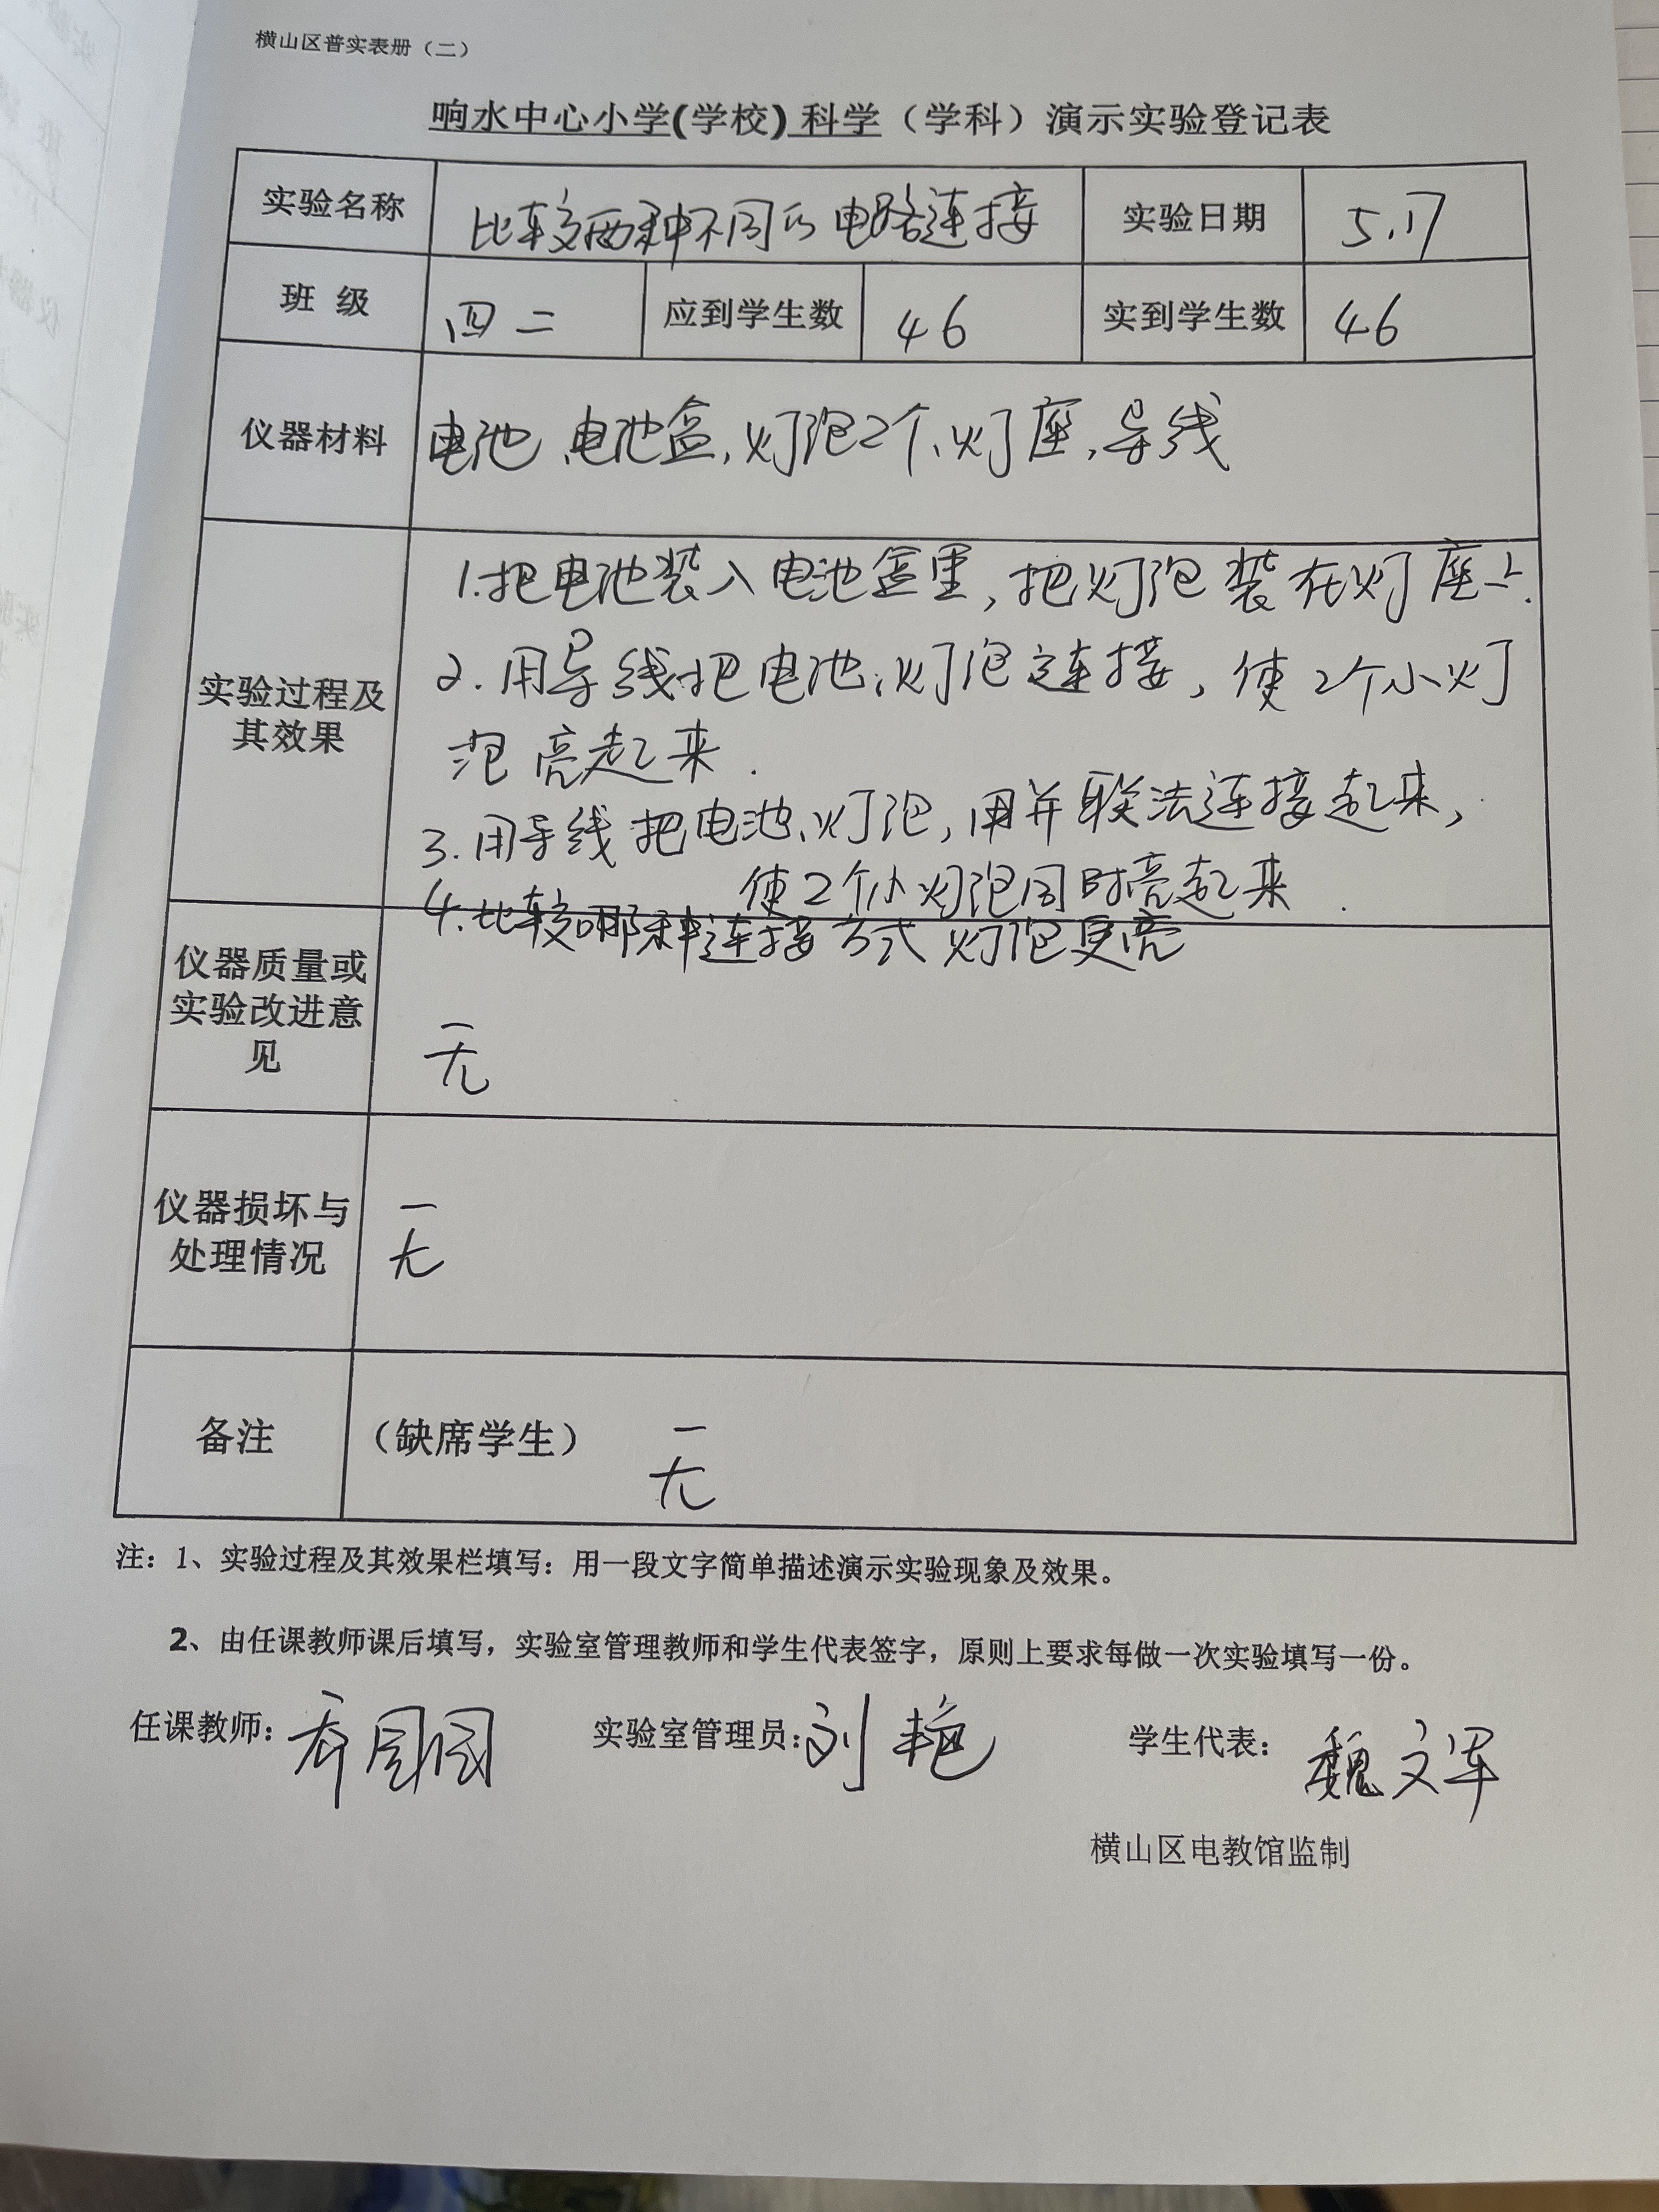 横山区普实表册（二）
响水中心小学(学校) 科学（学科）演示实验登记表
实验名称 比较两种不同的电路连接 实验日期 5.17
班 级 四二 应到学生数 46 实到学生数 46
仪器材料 电池、电池盒，灯泡2个、灯座，导线
1.把电池装入电池盒里，把灯泡装在灯座上.
2.用导线把电池、灯泡连接，使2个小灯
实验过程及
其效果
泡亮起来.
3.用导线把电池、灯泡，用并联法连接起来，
使2个小灯泡同时亮起来.
4.比较哪种连接方式灯泡更亮
仪器质量或
实验改进意
见
无
仪器损坏与
处理情况
无
备注 （缺席学生） 无
注：1、实验过程及其效果栏填写：用一段文字简单描述演示实验现象及效果。
2、由任课教师课后填写，实验室管理教师和学生代表签字，原则上要求每做一次实验填写一份。
任课教师： 实验室管理员：刘艳 学生代表：魏文军
横山区电教馆监制